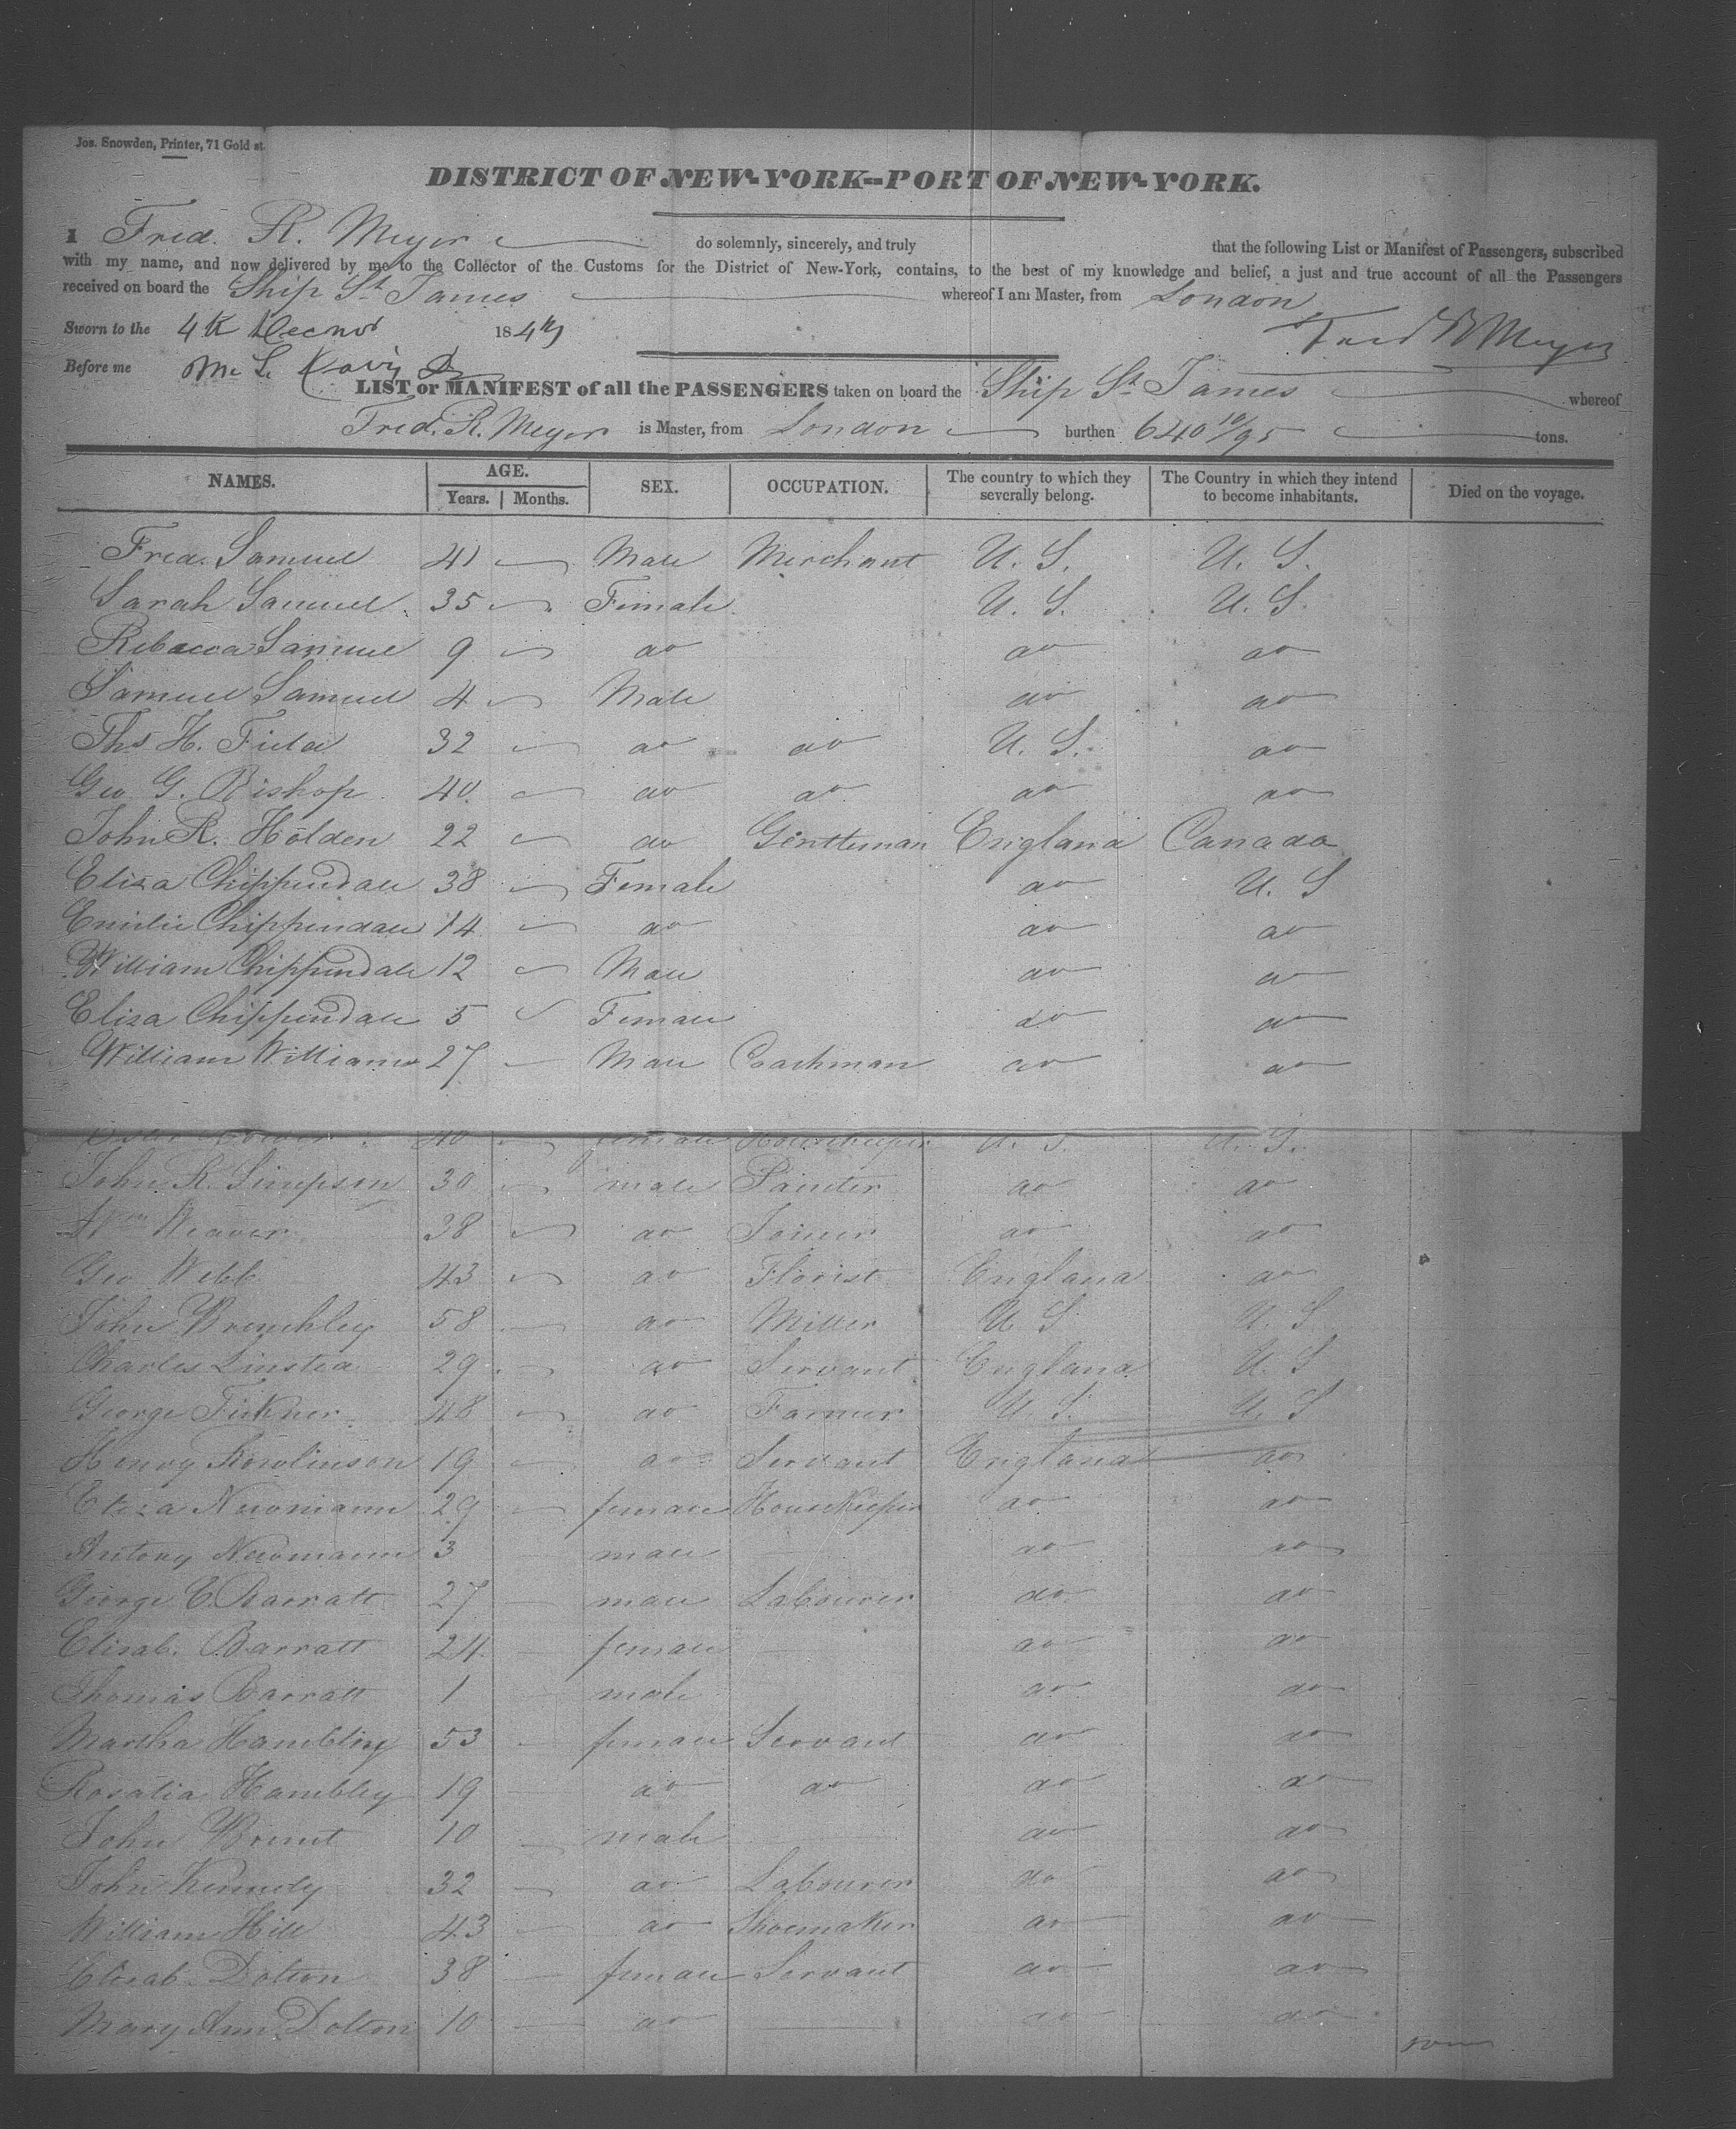 Jos. Snowden, Printer, 71 Gold st.
DISTRICT OF NEW-YORK--PORT OF NEW-YORK.
I Fred. R. Meyer do solemnly, sincerely, and truly that the following List or Manifest of Passengers, subscribed
with my name, and now delivered by me to the Collector of the Customs for the District of New-York, contains, to the best of my knowledge and belief, a just and true account of all the Passengers
received on board the Ship St James whereof I am Master, from London
Sworn to the 4th 184 Fred R Meyer
Before me
LIST or MANIFEST of all the PASSENGERS taken on board the Ship St James whereof
Fred. R. Meyer is Master, from London burthen 640 10/95 tons.
NAMES. AGE. Years. Months. SEX. OCCUPATION. The country to which they severally belong. The Country in which they intend to become inhabitants. Died on the voyage.
Fred. Samuel 41 Male Merchant U. S. U. S.
Sarah Samuel 35 Female U. S. U. S.
Rebecca Samuel 9 do do do
Samuel Samuel 4 Male do do
Ths H. Field 32 do do U. S. do
Geo G. Bishop 40 do do do do
John R. Holden 22 do Gentleman England Canada
Eliza Chippendale 38 Female do U. S
Emilie Chippendale 14 do do do
William Chippendale 12 Male do do
Eliza Chippendale 5 Female do do
William Williams 27 Male Coachman do do
40 female Housekeeper U. S. U. S.
John R. Simpson 30 male Painter do do
Wm Weaver 38 do Joiner do do
Geo Webb 43 do Florist England do
John Brenchley 58 do Miller U S U. S
Charles Linstea 29 do Servant England U. S
George Fickner 48 do Farmer U. S. U. S
Henry Rowlinson 19 do Servant England do
Eliza Newmann 29 female HouseKeeper do do
Antony Newmann 3 male do do
George C. Barratt 27 male Labourer do do
Elisab. Barratt 24 female do do
Thomas Barratt 1 male do do
Martha Hambling 53 female Servant do do
Rosalia Hambley 19 do do do do
John Brunt 10 male do do
John Kennedy 32 do Labourer do do
William Hill 43 do Shoemaker do do
Elisab. Dolton 38 female Servant do do
Mary Ann Dolton 10 do do do